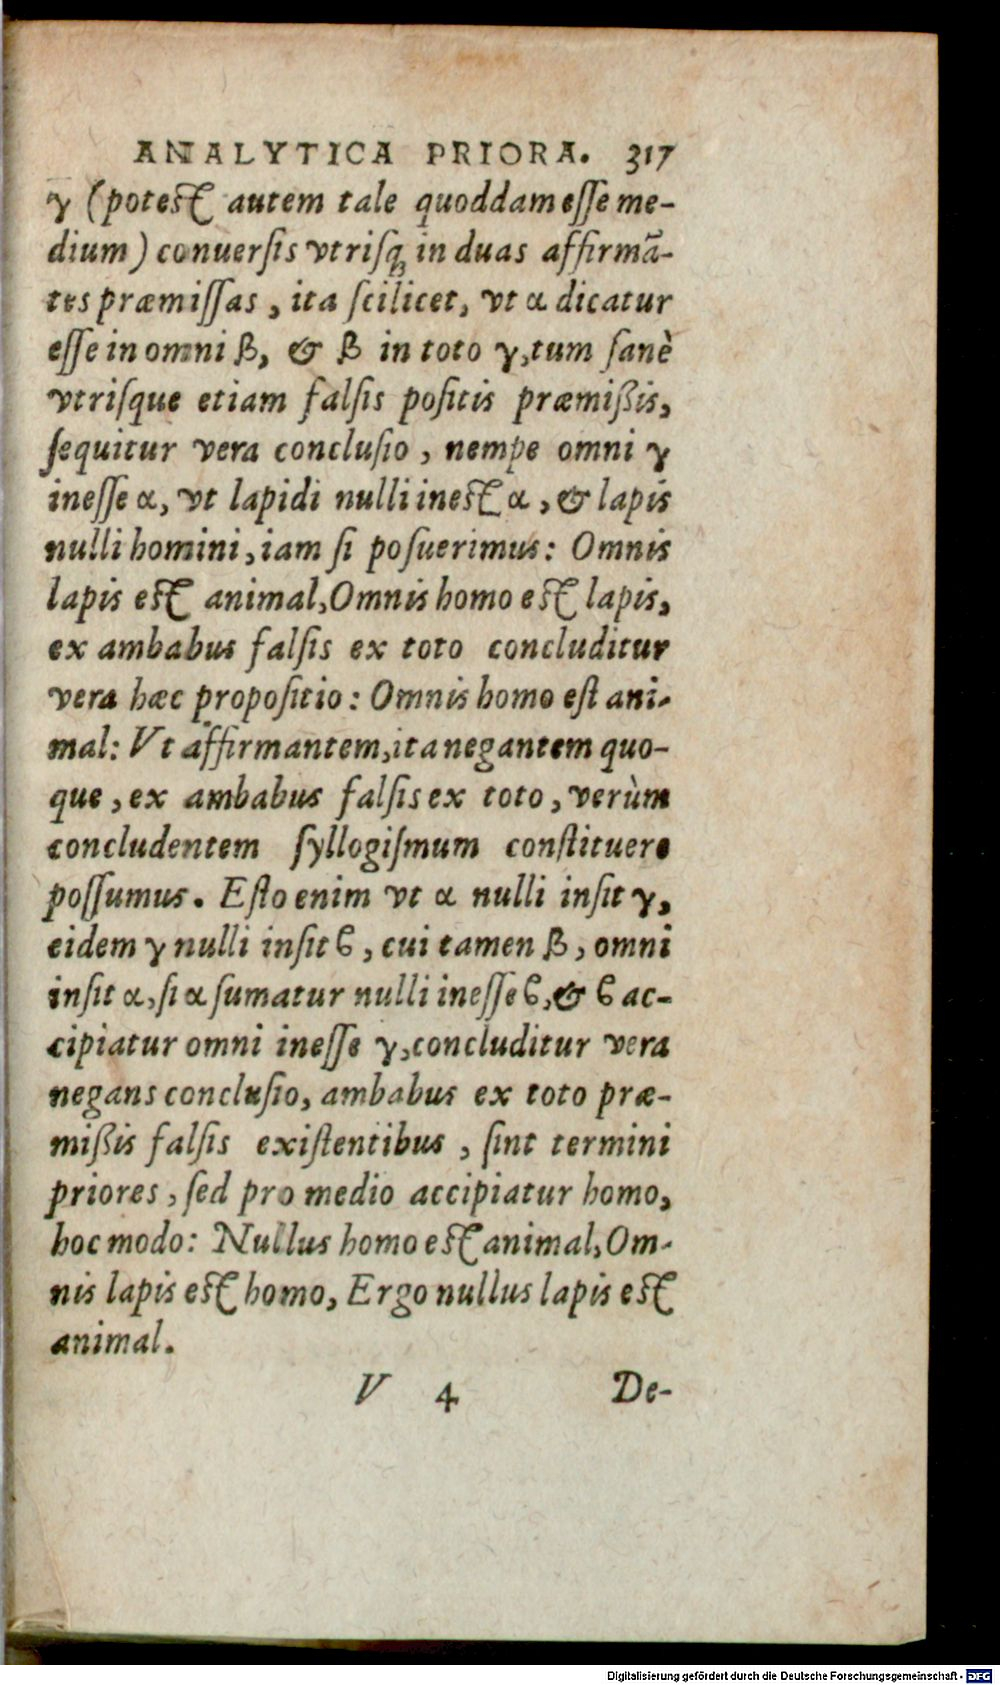 ANALYTICA PRIORA. 317
γ (potest autem tale quoddam esse me-
dium) conuersis vtrisq; in duas affirmā-
tes præmissas, ita scilicet, vt α dicatur
esse in omni β, & β in toto γ, tum sanè
vtrisque etiam falsis positis præmißis,
sequitur vera conclusio, nempe omni γ
inesse α, vt lapidi nulli inest α, & lapis
nulli homini, iam si posuerimus: Omnis
lapis est animal, Omnis homo est lapis,
ex ambabus falsis ex toto concluditur
vera hæc propositio: Omnis homo est ani-
mal: Vt affirmantem, ita negantem quo-
que, ex ambabus falsis ex toto, verùm
concludentem syllogismum constituere
possumus. Esto enim vt α nulli insit γ,
eidem γ nulli insit ϐ, cui tamen β, omni
insit α, si α sumatur nulli inesse ϐ, & ϐ ac-
cipiatur omni inesse γ, concluditur vera
negans conclusio, ambabus ex toto præ-
mißis falsis existentibus, sint termini
priores, sed pro medio accipiatur homo,
hoc modo: Nullus homo est animal, Om-
nis lapis est homo, Ergo nullus lapis est
animal.
V 4 De-
Digitalisierung gefördert durch die Deutsche Forschungsgemeinschaft - DFG